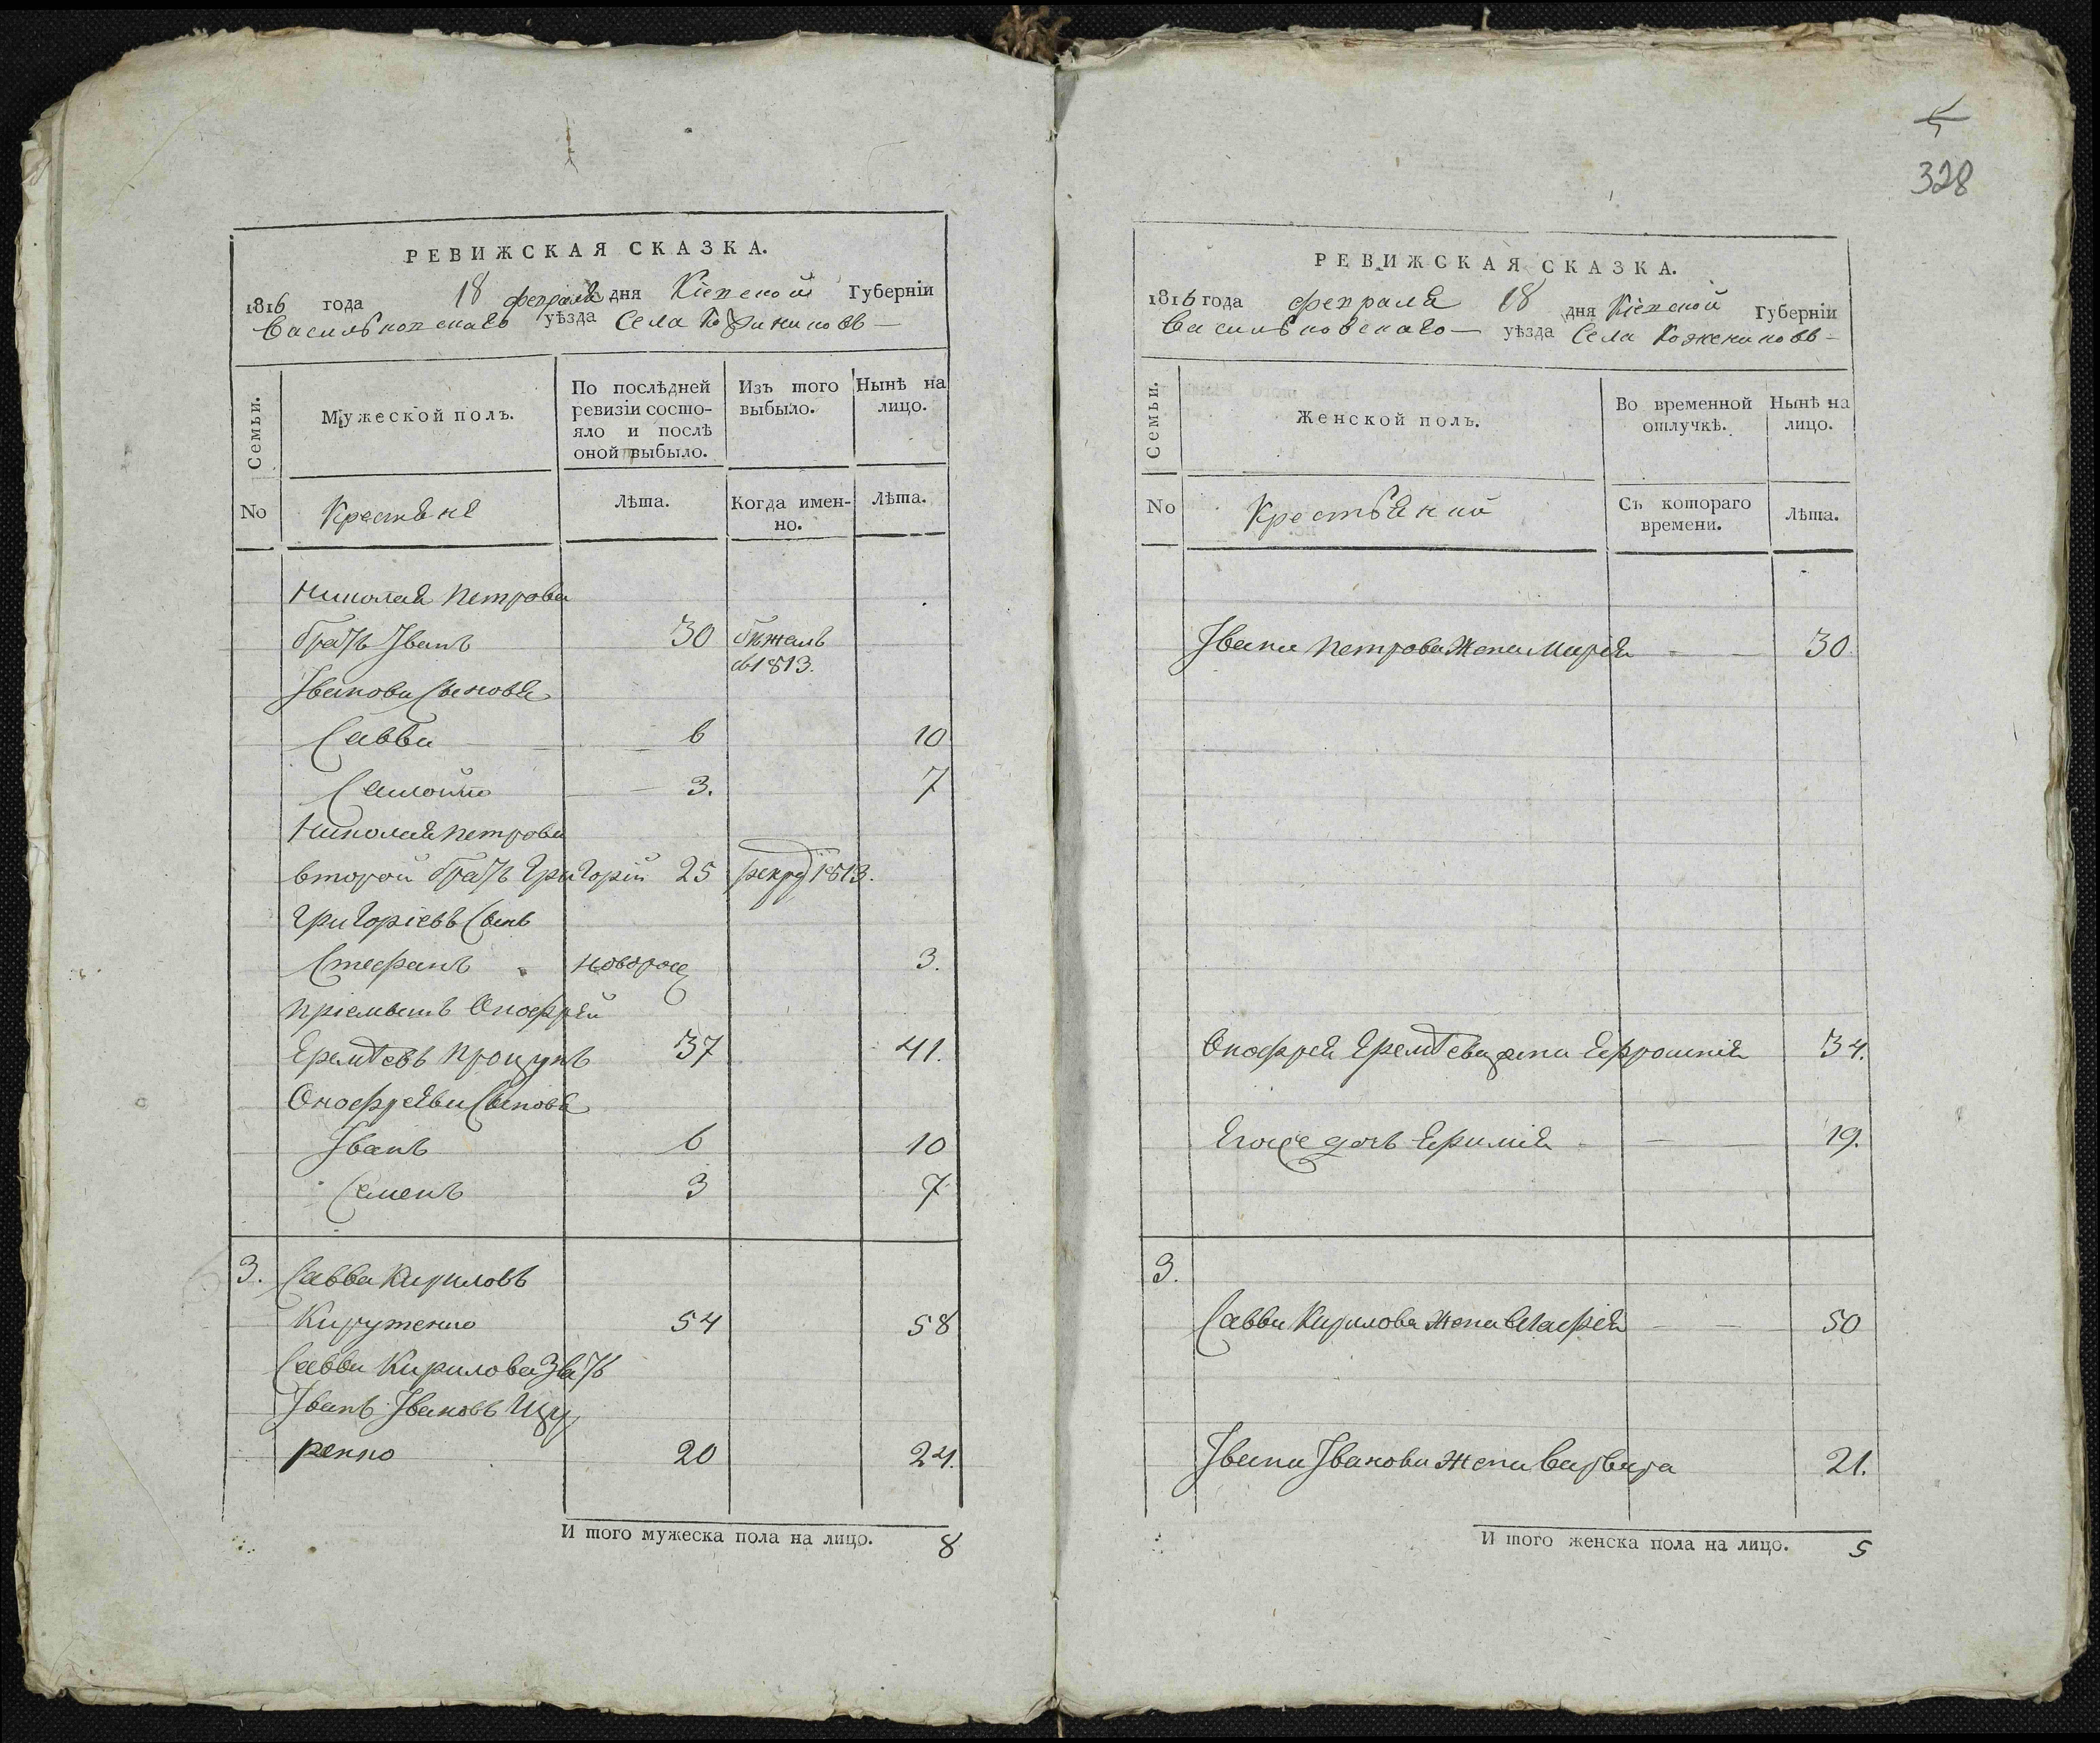 328
РЕВИЖСКАЯ СКАЗКА.
1816 года 18 февраля дня Кіевской Губерніи
Васильковскаго уѣзда Села Кожениковъ
Семьи.
Мужеской полъ.
По послѣдней
ревизіи состо-
яло и послѣ
оной выбыло.
Изъ того
выбыло.
Нынѣ на
лицо.
No
Крестяне
Лѣта.
Когда имен-
но.
Лѣта.
Николая Петрова
братъ Іванъ 30 бѣжалъ
въ 1813.
Іванови Сыновья
Савва 6 10
Самойло 3. 7
Николая Петрова
второй братъ Григорій 25 рекру 1813.
Григоріевъ Сынъ
Стефанъ новорож 3.
пріемышъ Онофрей
Еремѣевъ Процукъ 37 41.
Онофреяви Сыновя
Іванъ 6 10
Семенъ 3 7
3. Савва Кириловъ
54 58
Савви Кирилова Зять
Іванъ Івановъ
ренко 20 24.
И того мужеска пола на лицо. 8
РЕВИЖСКАЯ СКАЗКА.
1816 года февраля 18 дня Кіевской Губерніи
Васильковскаго уѣзда Села Кожениковъ
Семьи.
Женской полъ.
Во временной
отлучкѣ.
Нынѣ на
лицо.
No
Крестьянкй
Съ котораго
времени.
Лѣта.
Івана Петрова Жена Марія 30
Онофрея Еремѣева жена Ефросинія 34.
Евоже дочь Ефимія 19.
3.
Савви Кирилова Жена Агафія 50
Івана Іванова Жена Варвара 21.
И того женска пола на лицо. 5